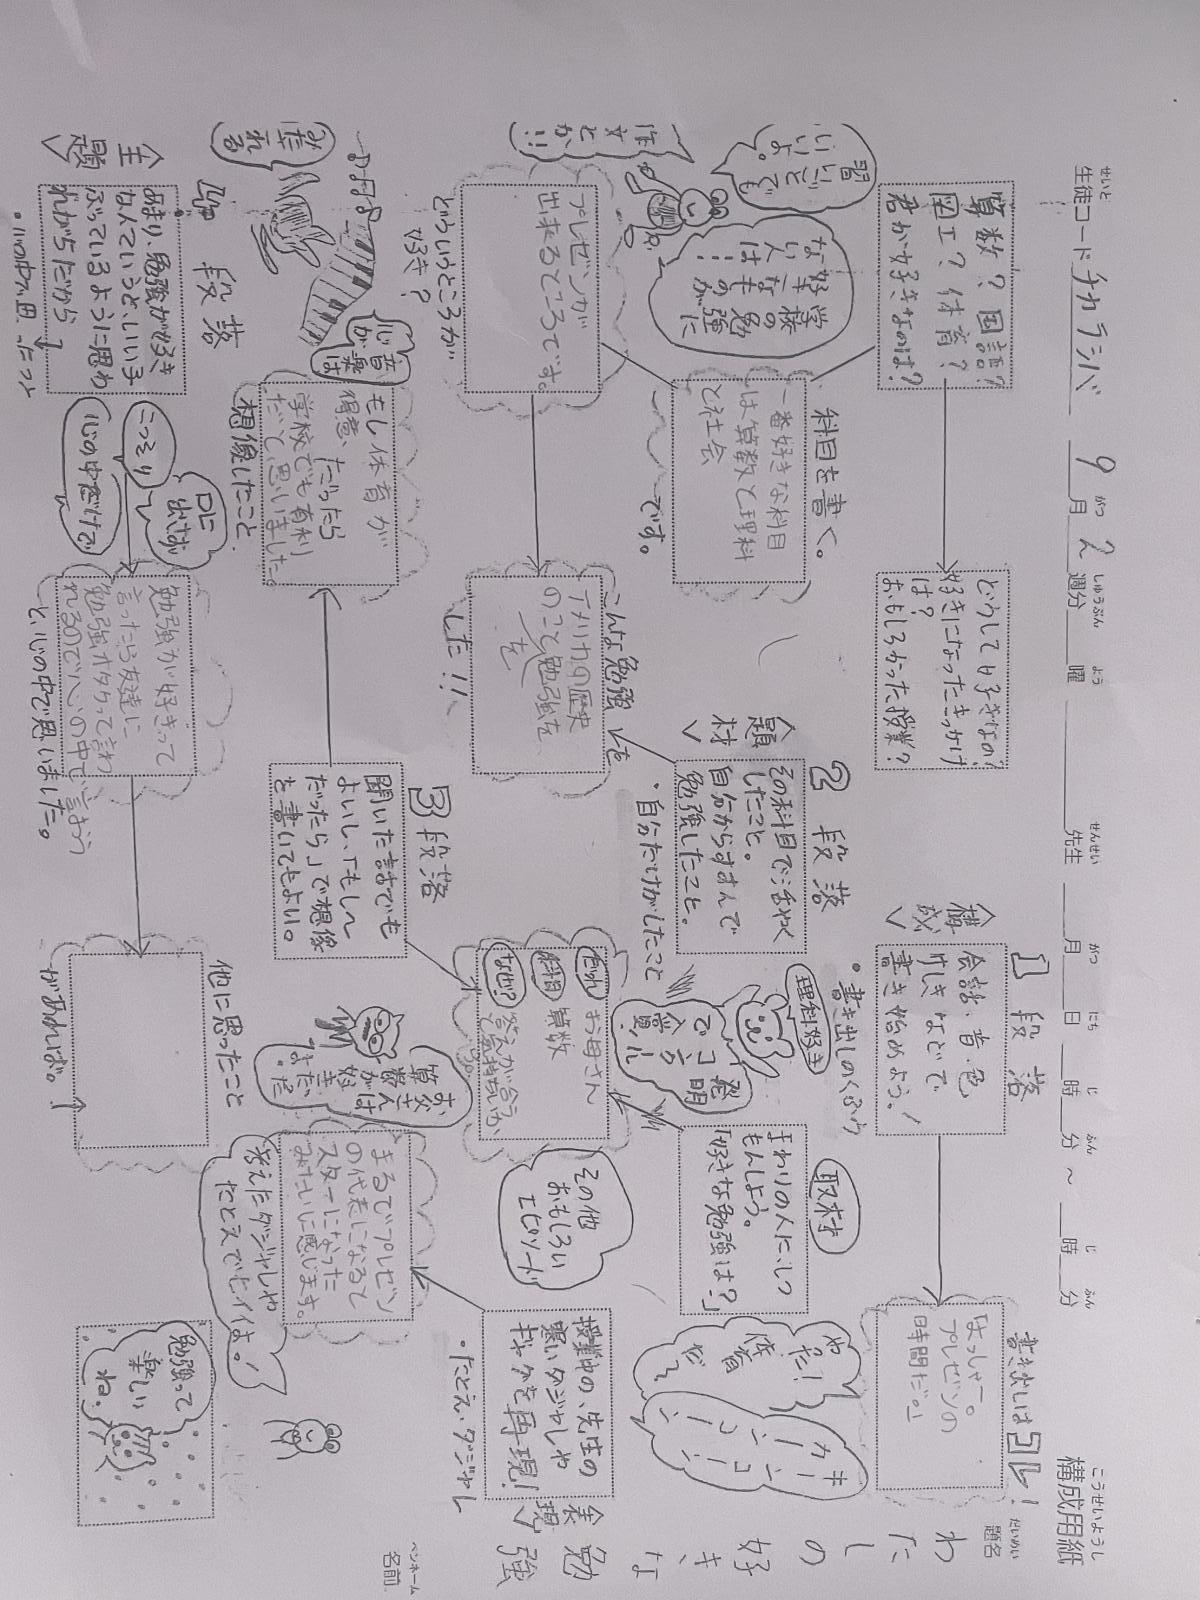 構成用紙
こうせいようし
生徒コード チカラシバ 9月2週分 曜 先生 月 日 時 分 ～ 時 分
せいと がつ しゅうぶん よう せんせい がつ にち じ ふん じ ふん
題名
だいめい
わたしの好きな勉強
ペンネーム
名前
算数？国語？
図工？体育？
君が好きなのは？
どうして好きなの？
好きになったきっかけ
は？
おもしろかった授業？
＜構成＞
1段落
会話・音・色
けしきなどで
書き始めよう！
・書き出しのくふう
書き出しはコレ！
「よっしゃー。
プレゼンの
時間だ。」
やった！
体育
だ～
キーンコーンカーン
習いごとでも
いいよ。
作文とか！！
学校の勉強に
好きなものが
ない人は…
科目を書く。
一番好きな科目
は算数と理科
と社会
です。
＜題材＞
2段落
その科目で活やく
したこと。
自分からすすんで
勉強したこと。
・自分だけがしたこと
理科好き
発明
コンクール
で入賞！
取材
まわりの人にしつ
もんしよう。
「好きな勉強は？」
プレゼンが
出来るところです。
どういうところが
好き？
こんな勉強を
アメリカの歴史
のことを勉強を
した！！
だれ
お母さん
科目
算数
なぜ？
答えが合う
と気持ちいいから。
その他
おもしろい
エピソード
＜表現＞
授業中の、先生の
寒いダジャレや
ギャグを再現！
・たとえ・ダジャレ
3段落
聞いた話でも
よいし、「もし〜
だったら」で想像
を書いてもよい。
お父さんは
算数が
好き
だった
音楽は
心が
みだれる
もし体育が
得意、だったら
学校でも有利
だと思いました。
想像したこと
まるでプレゼン
の代表になると
スターになった
みたいに感じます。
考えたダジャレや
たとえでもイイよ。！
＜主題＞
4段落
あまり、勉強が好き
なんていうと、いい子
ぶっているように思わ
れがちだから
・心の中で思ったこと
口に
出さず
こっそり
心の中だけで
勉強が好きって
言ったら友達に
勉強オタクって言わ
れるので心の中で言おう
と、心の中で思いました。
他に思ったこと
があれば。
勉強って
楽しい
ね。